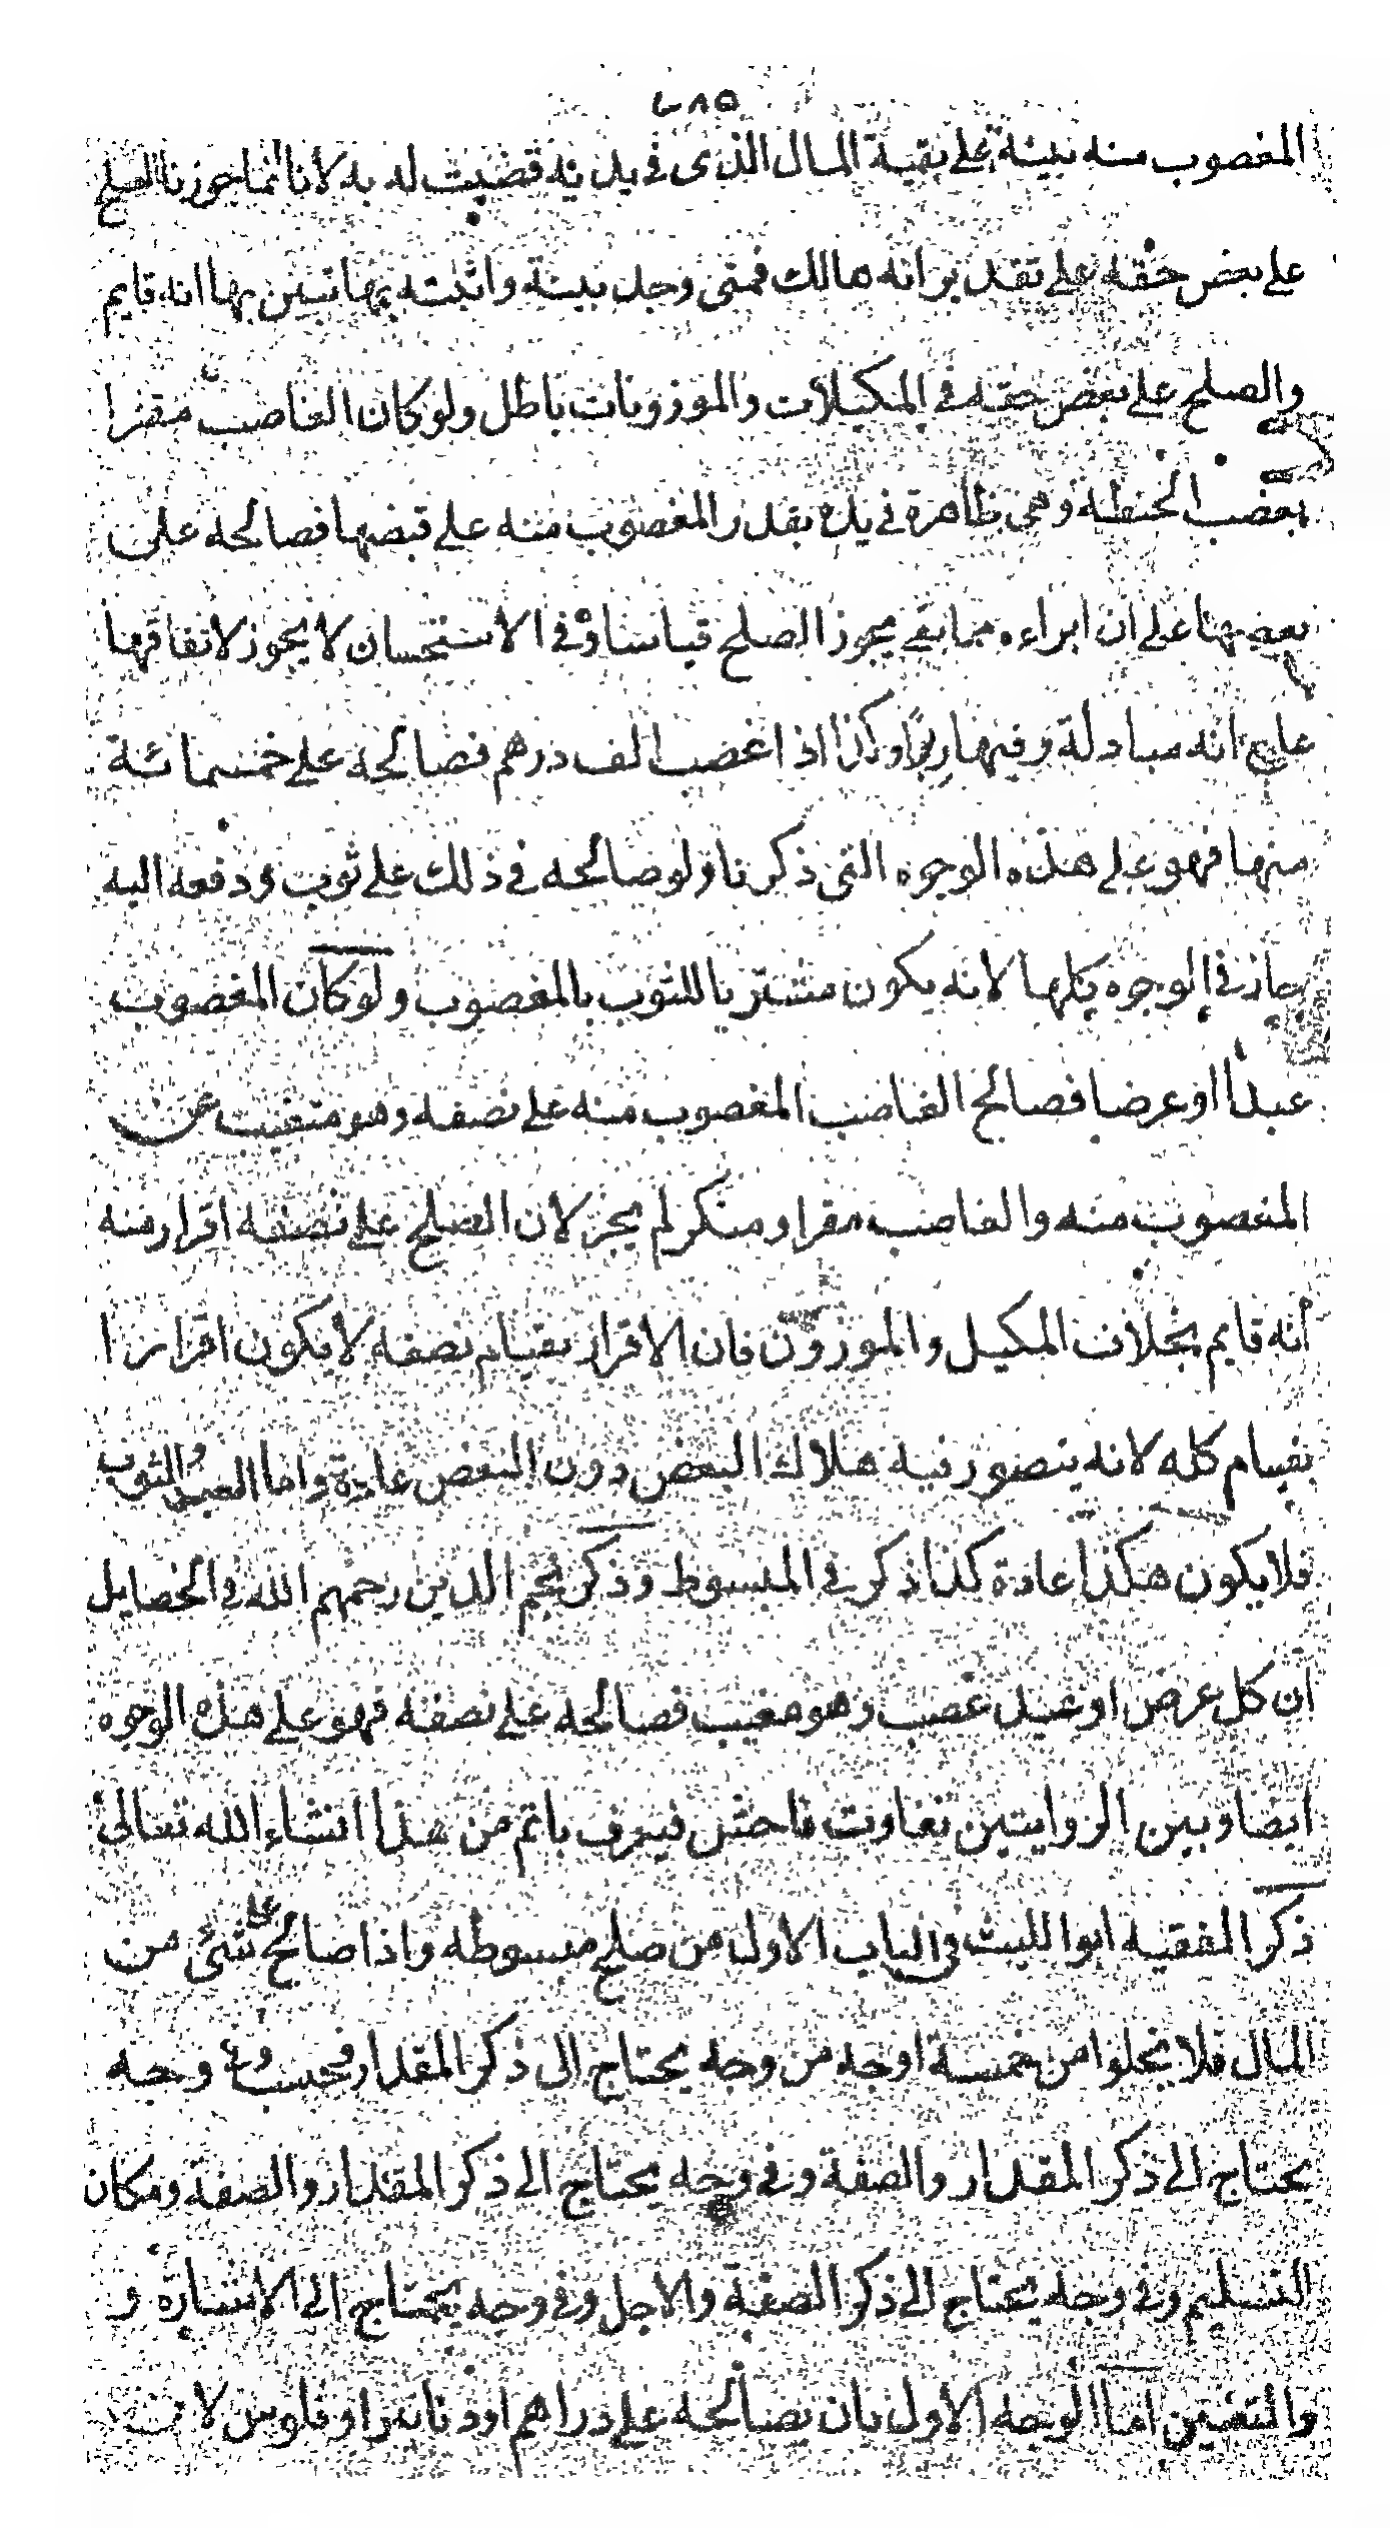 ٦٨٥
المغصوب منه ببينة على بقية المال الذى فى يديه قضيت له به لانا انما جوزنا الصلح
على بعض حقه على تقدير انه هالك فمتى وجد بينة واثبته بها تبين بها انه قايم
والصلح على بعض حقه فى المكيلات والموزونات باطل ولو كان الغاصب مقرا
بغصب الحنطة وهى ظاهرة فى يده بقدر المغصوب منه على قبضها فصالحه على
بعضها على ان ابراءه مما بقى يجوز الصلح قياسا وفى الاستحسان لا يجوز لاتفاقهما
على انه مبادلة وفيها ربوا وكذا اذا غصب الف درهم فصالحه على خمسمائة
منها فهو على هذه الوجوه التى ذكرنا ولو صالحه فى ذلك على ثوب ودفعه اليه
جاز فى الوجوه كلها لانه يكون مشتريا للثوب بالمغصوب ولو كان المغصوب
عبدا او عرضا فصالح الغاصب المغصوب منه على نصفه وهو متغيب عن
المغصوب منه والغاصب مقر او منكر لم يجز لان الصلح على نصفه اقرار منه
انه قايم بخلاف المكيل والموزون فان الاقرار بقيام نصفه لا يكون اقرارا
بقيام كله لانه يتصور فيه هلاك البعض دون البعض عادة واما العبد والثوب
فلا يكون هكذا عادة كذا ذكر فى المبسوط وذكر نجم الدين رحمهم الله فى الخصايل
ان كل عرض او عبد غصب وهو مغيب فصالحه على نصفه فهو على هذه الوجوه
ايضا وبين الروايتين تفاوت فاحش فيعرف باتم من هذا انشاء الله تعالى
ذكر الفقيه ابوا الليث فى الباب الاول من صلح مبسوطه واذا صالح على شئ من
المال فلا يخلوا من خمسة اوجه من وجه يحتاج الى ذكر المقدار فحسب وفى وجه
يحتاج الى ذكر المقدار والصفة وفى وجه يحتاج الى ذكر المقدار والصفة ومكان
التسليم وفى وجه يحتاج الى ذكر الصفة والاجل وفى وجه يحتاج الى الاشارة و
والتعيين اما الوجه الاول بان يصالحه على دراهم او دنانير او فلوس لان